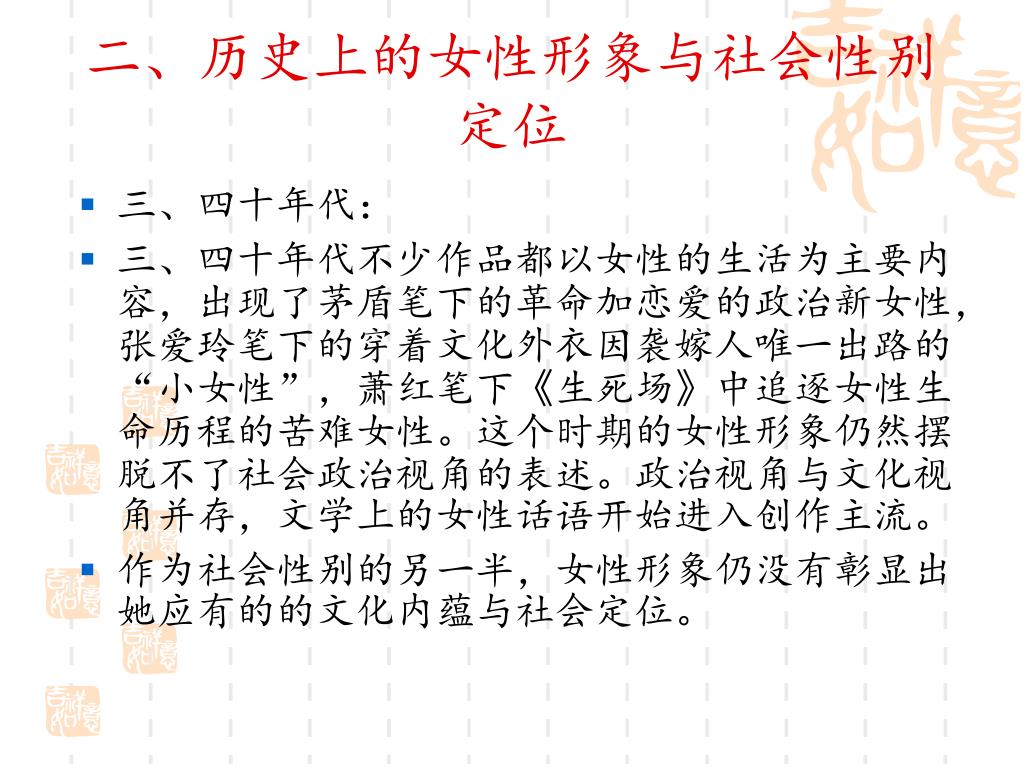 二、历史上的女性形象与社会性别
定位
三、四十年代：
三、四十年代不少作品都以女性的生活为主要内
容，出现了茅盾笔下的革命加恋爱的政治新女性，
张爱玲笔下的穿着文化外衣因袭嫁人唯一出路的
“小女性”，萧红笔下《生死场》中追逐女性生
命历程的苦难女性。这个时期的女性形象仍然摆
脱不了社会政治视角的表述。政治视角与文化视
角并存，文学上的女性话语开始进入创作主流。
作为社会性别的另一半，女性形象仍没有彰显出
她应有的的文化内蕴与社会定位。
吉祥
如意
吉祥
如意
吉祥
如意
吉祥
如意
吉祥
如意
吉祥
如意
吉祥
如意